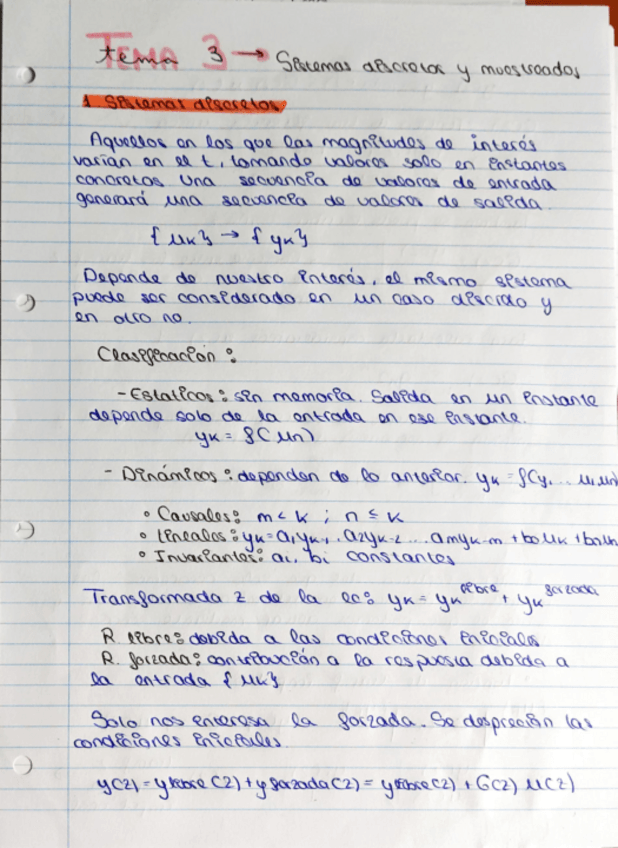 Tema 3 → Sistemas discretos y muestreados
1. Sistemas discretos
Aquellos en los que las magnitudes de interés
varían en el t, tomando valores solo en instantes
concretos Una secuencia de valores de entrada
generará una secuencia de valores de salida.
{ uk} → { yk}
Depende de nuestro interés, el mismo sistema
puede ser considerado en un caso discreto y
en otro no.
Clasificación :
- Estáticos : sin memoria. Salida en un instante
depende solo de la entrada en ese instante.
yk = f( un)
- Dinámicos : dependen de lo anterior. yk = f(y,... u, un)
• Causales : m < k ; n ≤ k
• Lineales : yk = a1yk-1 a2yk-2 ... amyk-m + b0uk + bnun
• Invariantes : ai, bi constantes
Transformada z de la ec : yk = yk libre + yk forzada
R. libre : debida a las condiciones iniciales
R. forzada : contribución a la respuesta debida a
la entrada { uk}
Solo nos interesa la forzada. Se desprecian las
condiciones iniciales.
y(z) = ylibre (z) + yforzada (z) = ylibre(z) + G(z) u(z)